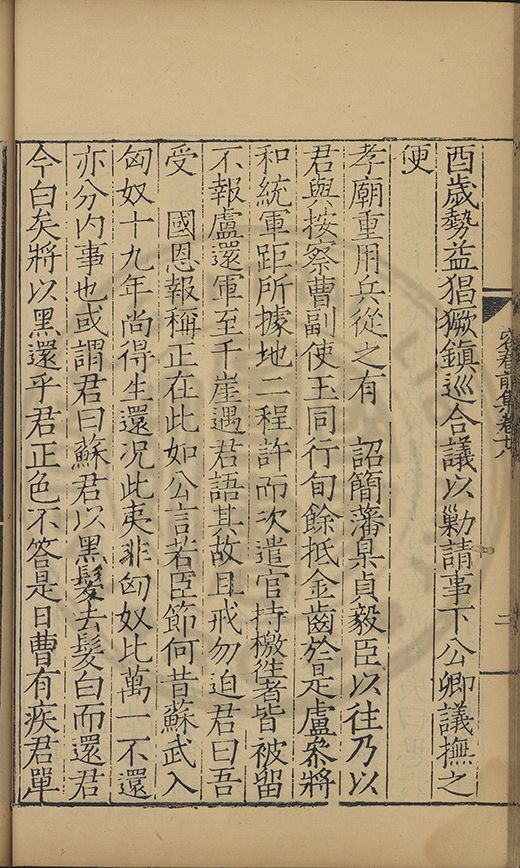 酉歲勢益猖獗鎮巡合議以勦請事下公卿議撫之
便
孝廟重用兵從之有　詔簡藩臬貞毅臣以往乃以
君與按察曹副使玉同行旬餘抵金齒於是盧參將
和統軍距所據地二程許而次遣官持檄徃者皆被留
不報盧還軍至千崖遇君語其故且戒勿迫君曰吾
受　國恩報稱正在此如公言若臣節何昔蘇武入
匈奴十九年尚得生還况此夷非匈奴比萬一不還
亦分内事也或謂君曰蘇君以黑髮去髮白而還君
今白矣將以黑還乎君正色不答是日曹有疾君單
容春前集卷十八
二